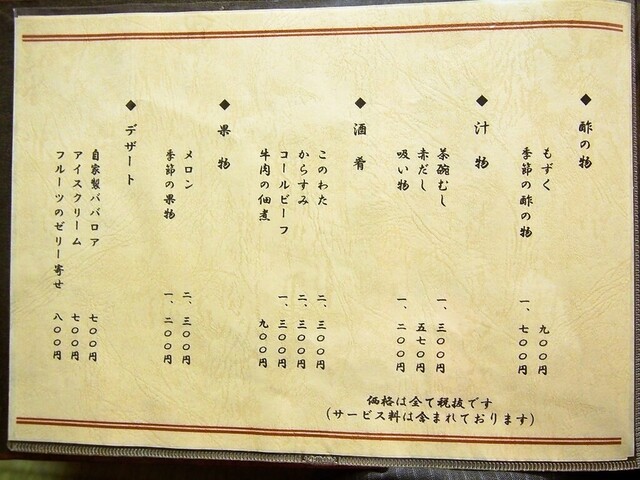 ◆酢の物
もずく 九〇〇円
季節の酢の物 一、七〇〇円
◆汁物
茶碗むし 一、三〇〇円
赤だし 五七〇円
吸い物 一、二〇〇円
◆酒肴
このわた 二、三〇〇円
からすみ 二、三〇〇円
コールビーフ 一、三〇〇円
牛肉の佃煮 九〇〇円
◆果物
メロン 二、三〇〇円
季節の果物 一、二〇〇円
◆デザート
自家製ババロア 七〇〇円
アイスクリーム 七〇〇円
フルーツのゼリー寄せ 八〇〇円
価格は全て税抜です
（サービス料は含まれております）